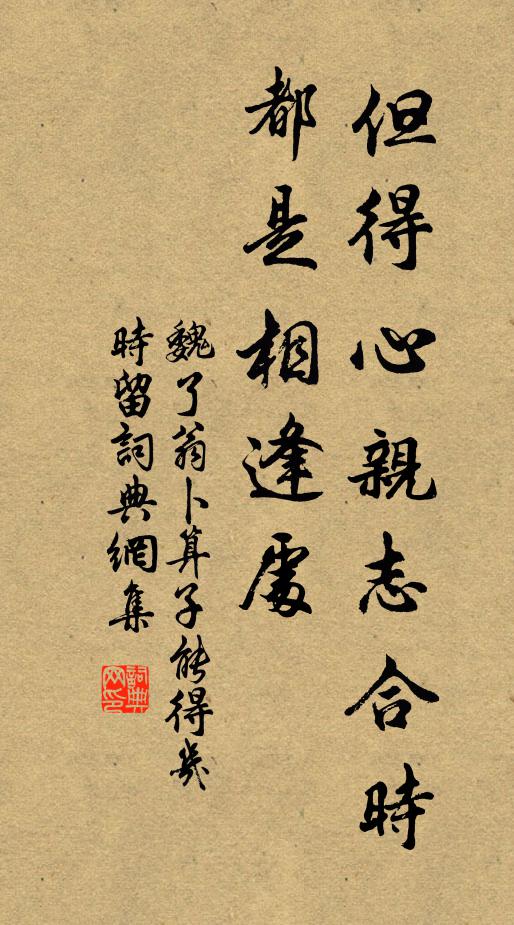 但得心親志合時
都是相逢處
魏了翁卜算子能得幾
時留詞典網集
詞典网印